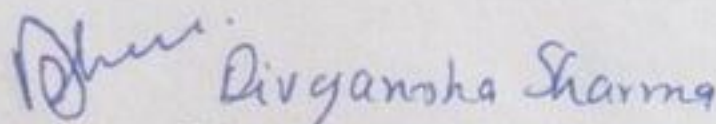 Divyansha Sharma